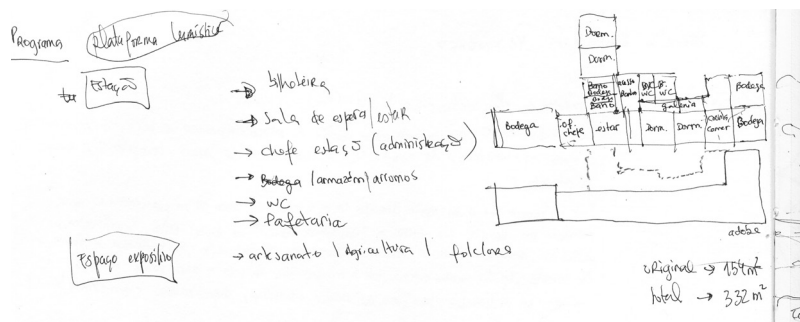 Programa
plataforma turística
Estação
→ bilheteira
→ Sala de espera/estar
→ chefe estação (administração)
→ Bodega /armazém/arrumos
→ WC
→ Cafetaria
Espaço expositivo
→ artesanato / Agricultura / folclore
Dorm.
Dorm.
Baño
Bodega
Baño
WC
WC
galeria
Bodega
Bodega
of. chefe
estar
Dorm.
Dorm.
Bodega
adobe
original → 154 m²
total → 332 m²